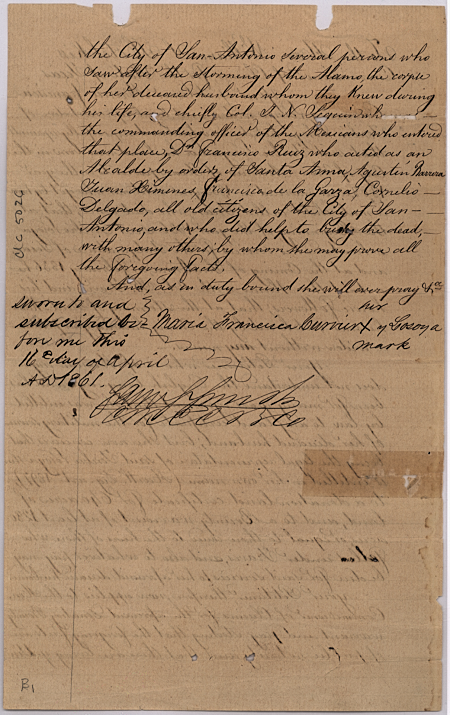 the City of San-Antonio several persons who
saw after the storming of the Alamo, the corpse
of her deceased husband whom they knew during
his life, and chiefly Col. J. N. Seguin who
the commanding officer of the Mexicans who entered
that place, Dn Francisco Ruiz who acted as an
Alcalde by orders of Santa Anna, Agustin Barrera
Juan Ximenes, Francisco de la Garza, Cornelio
Delgado, all old citizens of the City of San-
Antonio, and who did help to bury the dead,
with many others, by whom she may prove all
the foregoing facts.
And, as in duty bound she will ever pray &ce
sworn to and
her
subscribed be- Maria Francisca Curvier X y Losoya
fore me this
mark
16th day of April
AD 1861.
CLC 5026
4
B1